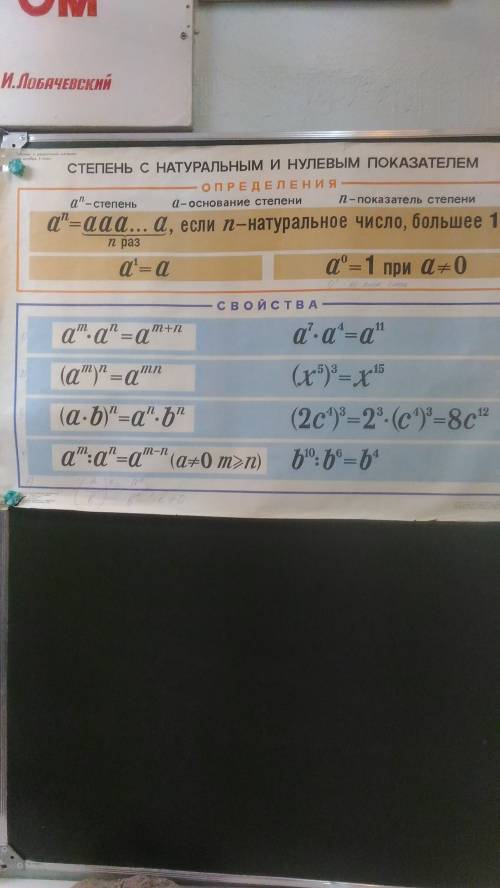 ОМ
И.Лобачевский
СТЕПЕНЬ С НАТУРАЛЬНЫМ И НУЛЕВЫМ ПОКАЗАТЕЛЕМ
ОПРЕДЕЛЕНИЯ
aⁿ–степень a–основание степени n–показатель степени
aⁿ=aaa...a, если n–натуральное число, большее 1
n раз
a¹=a a⁰=1 при a≠0
СВОЙСТВА
aᵐ·aⁿ=aᵐ⁺ⁿ a⁷·a⁴=a¹¹
(aᵐ)ⁿ=aᵐⁿ (x⁵)³=x¹⁵
(a·b)ⁿ=aⁿ·bⁿ (2c⁴)³=2³·(c⁴)³=8c¹²
aᵐ:aⁿ=aᵐ⁻ⁿ (a≠0 m⩾n) b¹⁰:b⁶=b⁴